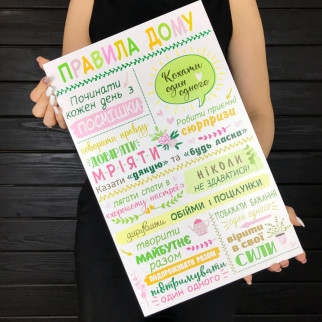 ПРАВИЛА ДОМУ
Починати
кожен день з
ПОСМІШКИ
Кохати
один
одного
говорити правду
ДОВІРЯТИ
МРІЯТИ
Робити приємні
сюрпризи
Казати «дякую» та «будь ласка»
лягати спати в
«хорошому настрої»
НІКОЛИ
НЕ ЗДАВАТИСЯ!
дарувати ОБІЙМИ І ПОЦІЛУНКИ
творити
МАЙБУТНЄ
разом
ПОВАЖАТИ БАЖАННЯ
один одного
вірити
в свої
СИЛИ
ПОДОРОЖУВАТИ РАЗОМ
підтримувати
ОДИН ОДНОГО